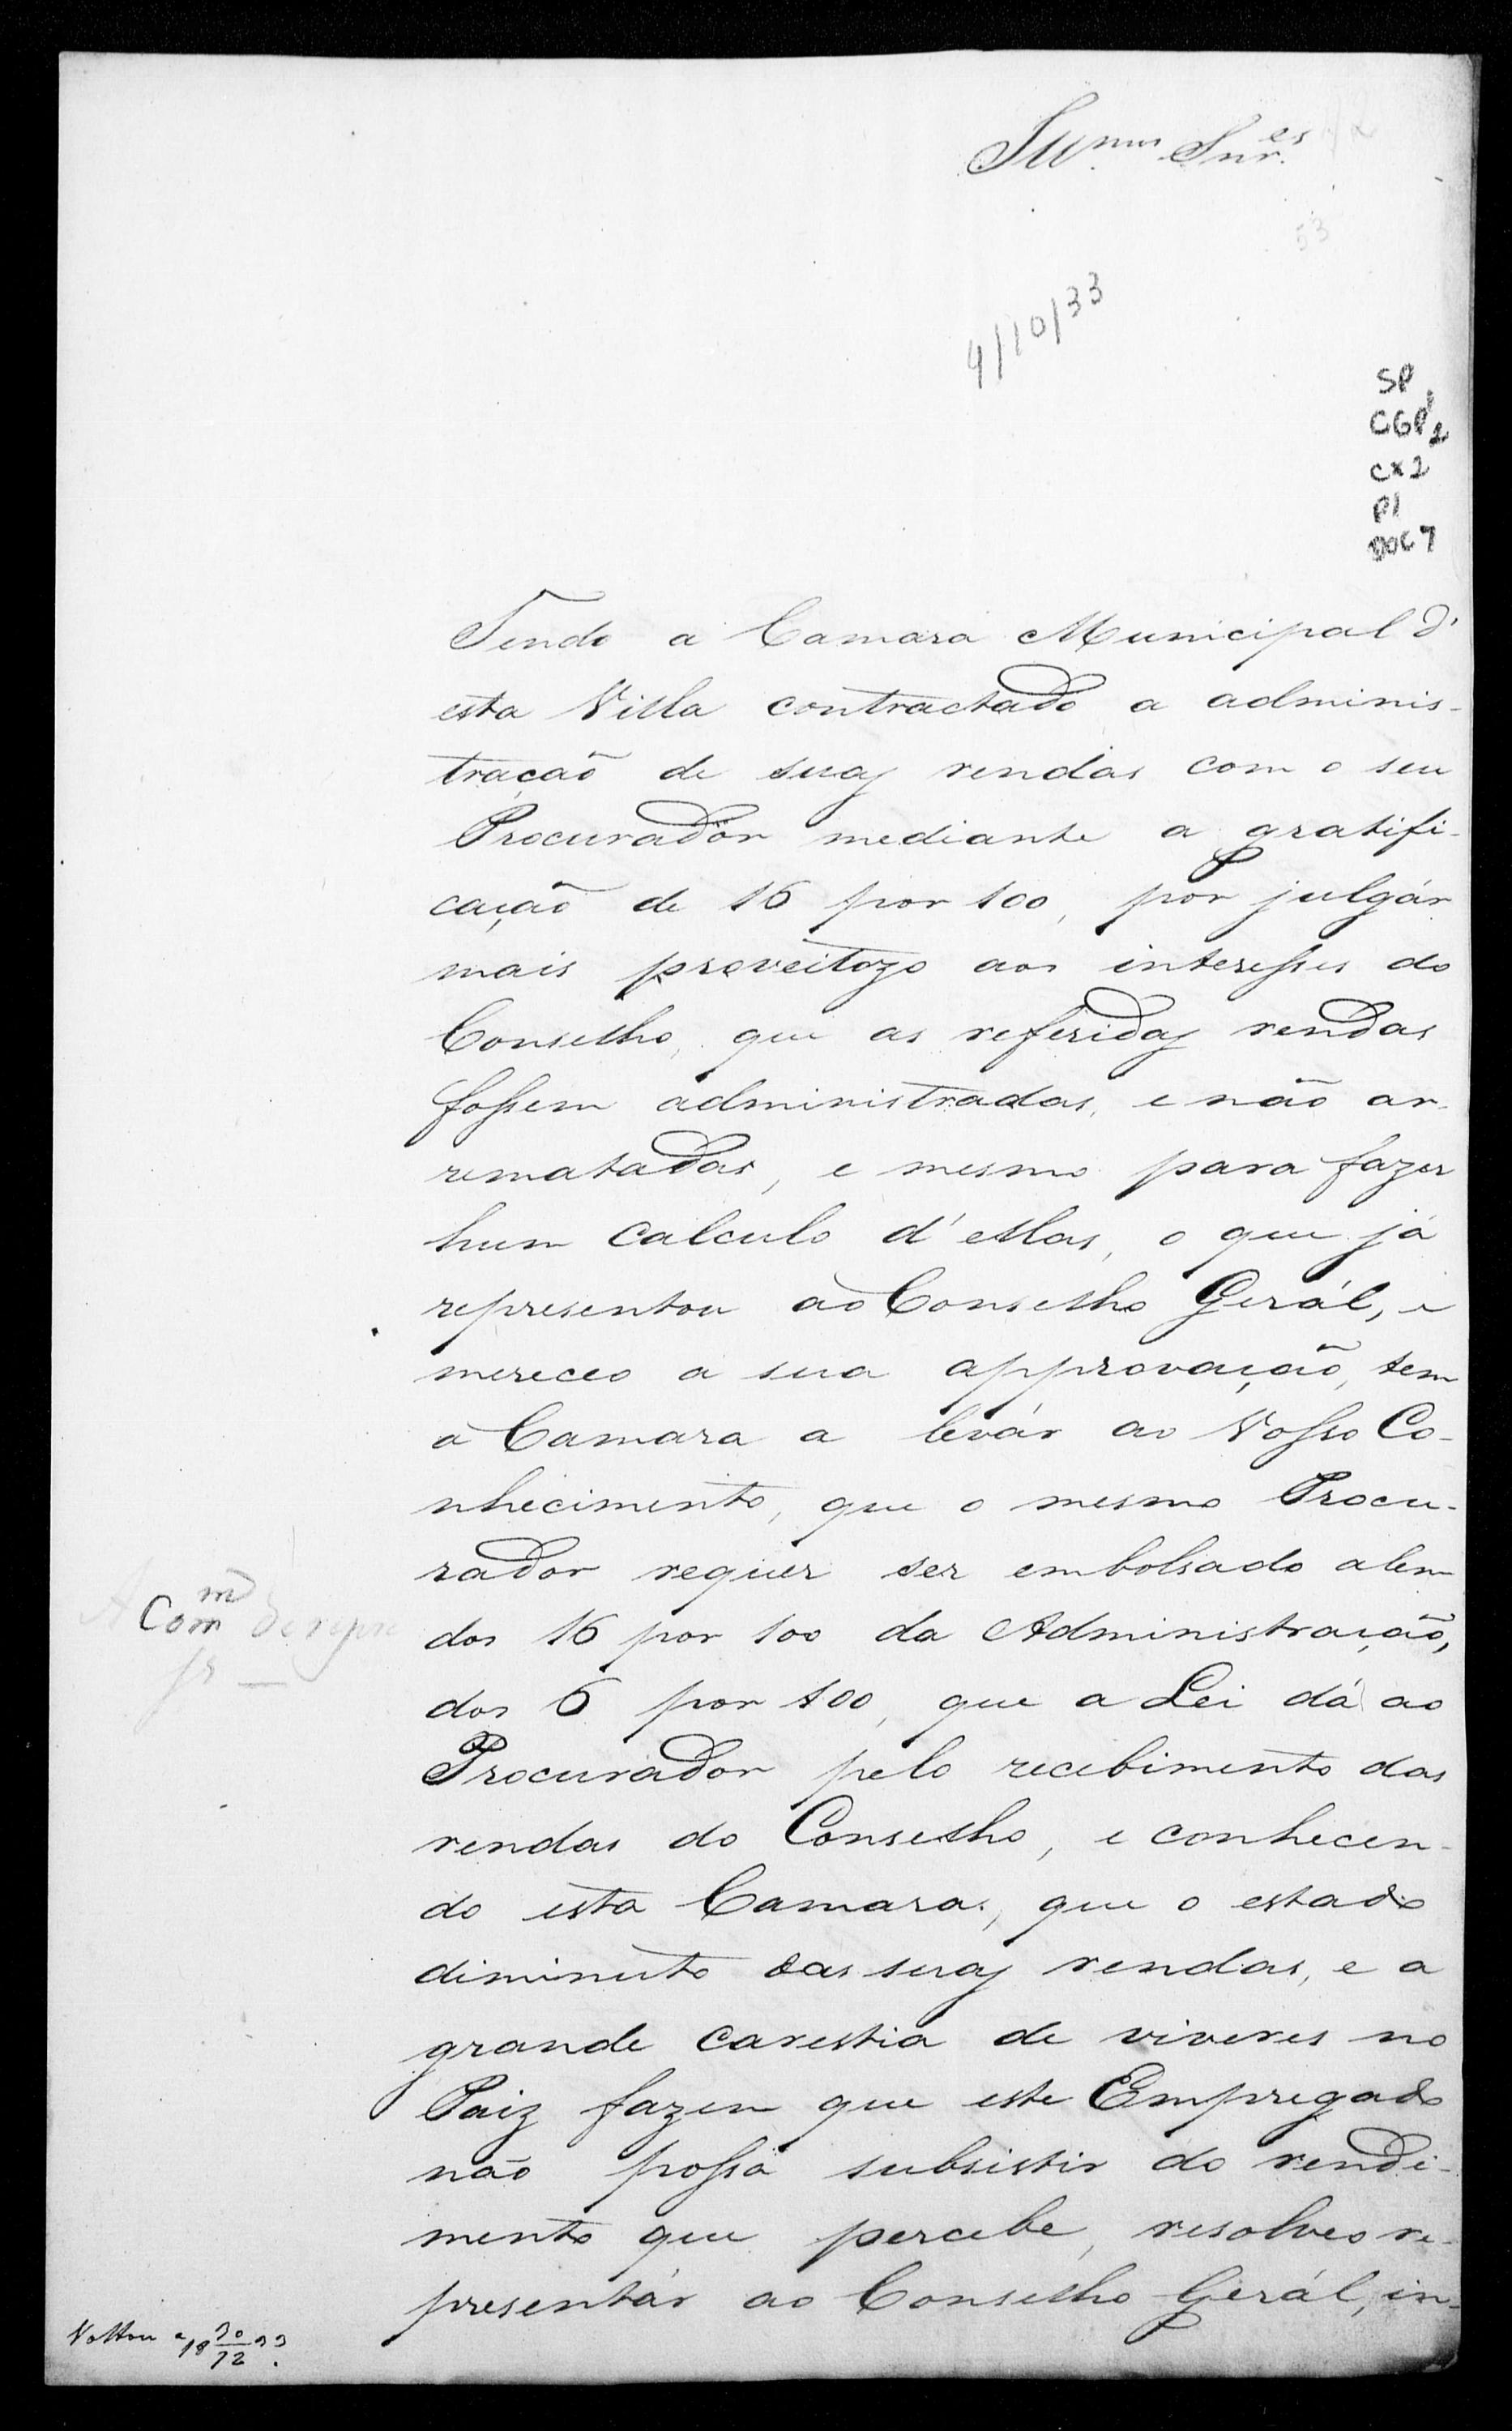 Illmos Snr.es
53
4/10/33
SP
CGP1
CX2
P1
DOC 7
Tendo a Camara Municipal d'
esta Villa contractado a adminis-
tração de suas rendas com o seu
Procuradôr mediante a gratifi-
cação de 16 por 100, por julgár
mais proveitozo aos interesses do
Conselho, que as referidas rendas
fossem administradas, e não ar-
rematadas, e mesmo para fazer
hum calculo d'ellas, o que já
representou ao Conselho Gerál, e
mereceo a sua approvação, tem
a Camara a levár ao Vosso Co-
nhecimento, que o mesmo Procu-
rador requer ser embolsado alem
dos 16 por 100 da Administração,
dos 6 por 100, que a Lei dá ao
Procurador pelo recebimento das
rendas do Conselho, e conhecen-
do esta Camara, que o estado
diminuto das suas rendas, e a
grande carestia de viveres no
Paiz fazem que este Empregado
não possa subsistir do rendi-
mento que percebe, resolveo re-
presentár ao Conselho Gerál, in-
A Comm
Voltou a 18 30/12 33.